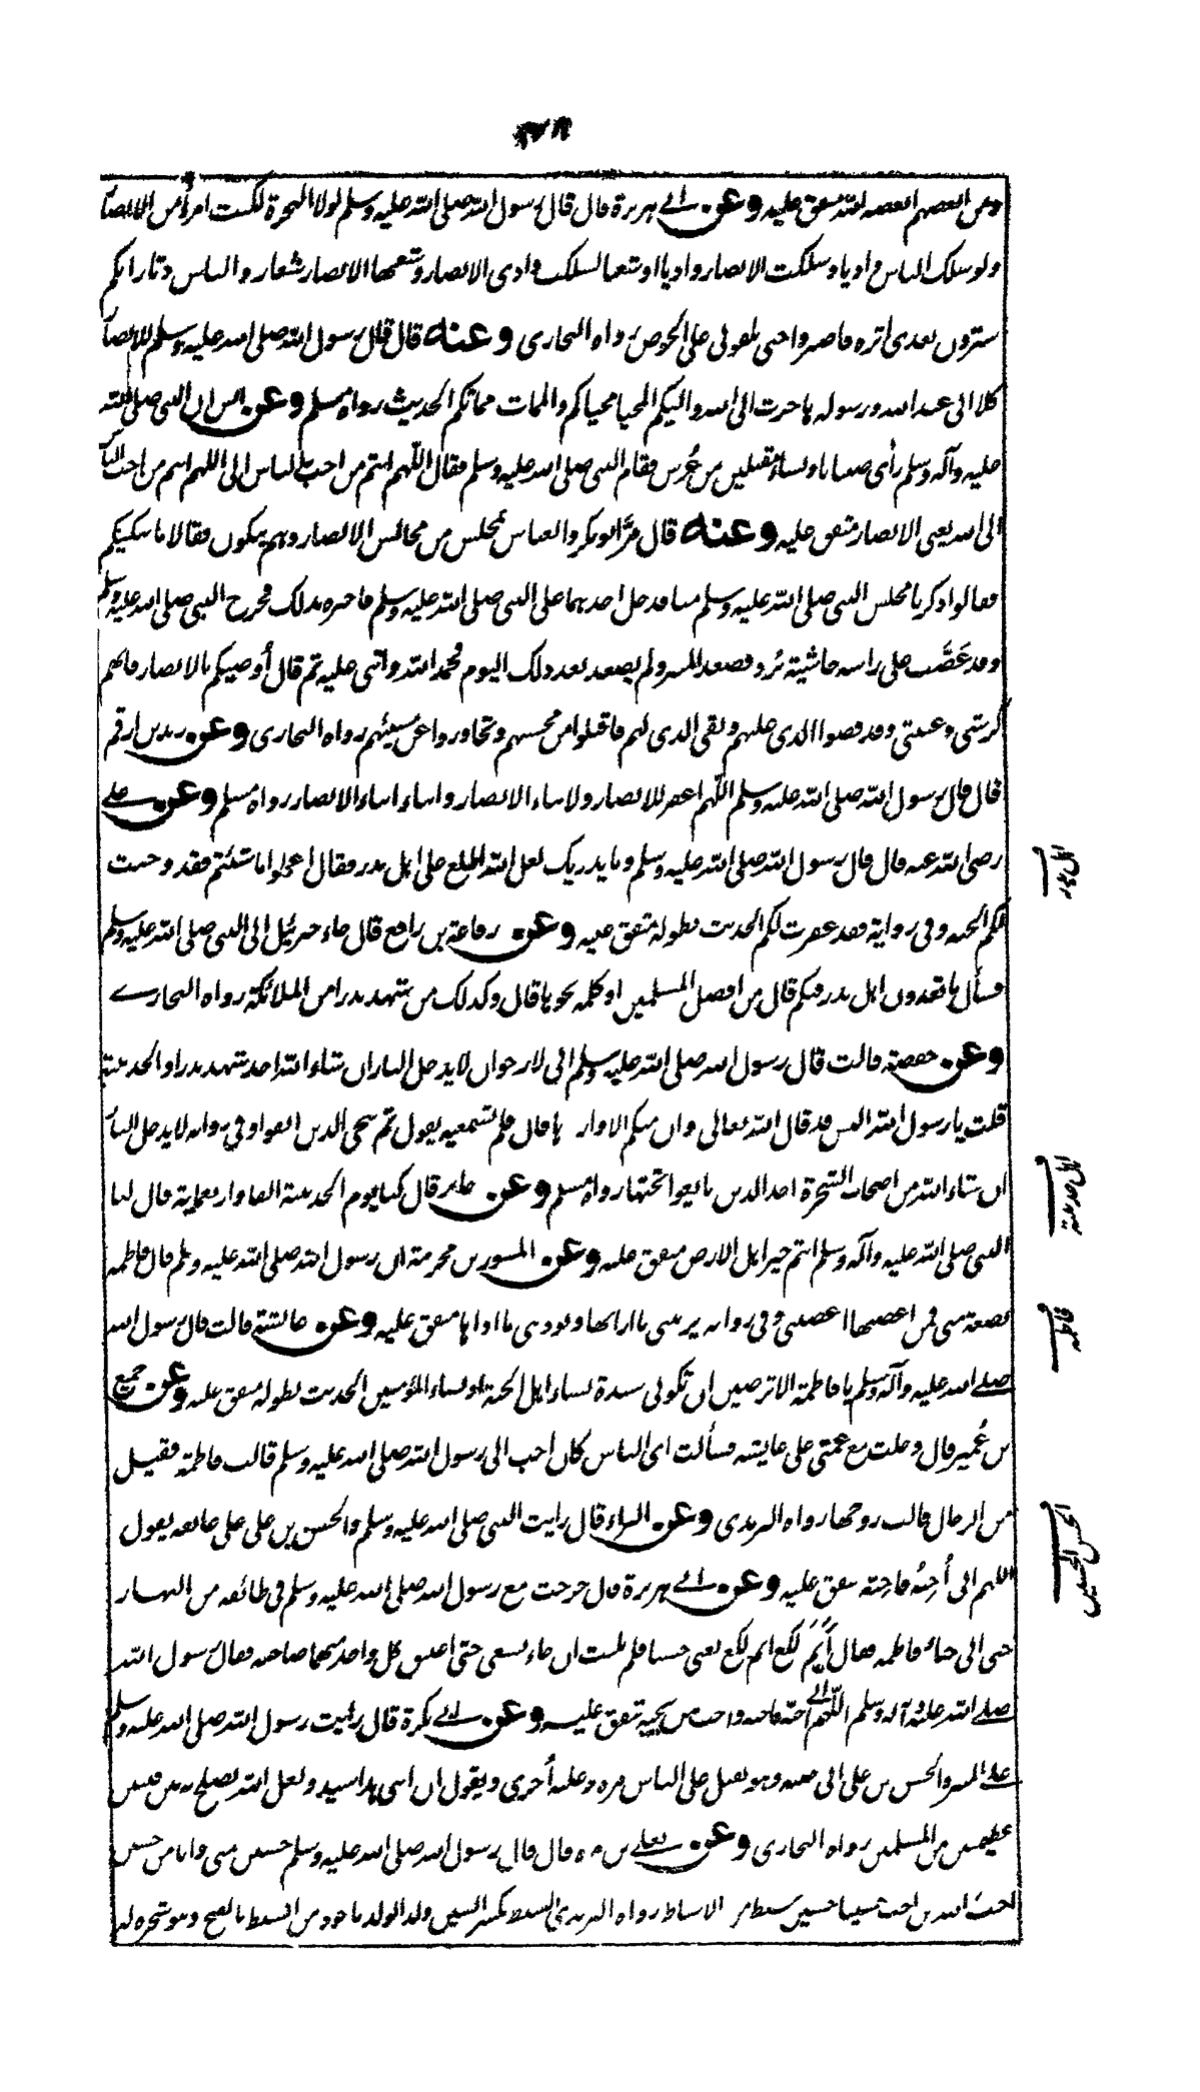 ومن ابغضهم ابغضه الله متفق عليه وعن ابي هريرة قال قال رسول الله صلى الله عليه وسلم لولا الهجرة لكنت امرأ من الانصار
ولو سلك الناس واديا وسلكت الانصار واديا او شعبا لسلكت وادى الانصار وشعبها الانصار شعار والناس دثار انكم
سترون بعدى اثرة فاصبروا حتى تلقونى على الحوض رواه البخارى وعنه قال قال رسول الله صلى الله عليه وسلم للانصار
كلا انى عبد الله ورسوله هاجرت الى الله واليكم المحيا محياكم والممات مماتكم الحديث رواه مسلم وعن انس ان النبى صلى الله
عليه وآله وسلم رأى صبيانا ونساء مقبلين من عُرس فقام النبى صلى الله عليه وسلم فقال اللهم انتم من احب الناس الى اللهم انتم من احب الناس
الى الله يعنى الانصار متفق عليه وعنه قال مرّ ابو بكر والعباس بمجلس من مجالس الانصار وهم يبكون فقالا ما يبكيكم
فقالوا ذكرنا مجلس النبى صلى الله عليه وسلم منا فدخل احدهما على النبى صلى الله عليه وسلم فاخبره بذلك فخرج النبى صلى الله عليه وسلم
وقد عَصَّب على راسه حاشية بُرد فصعد المنبر ولم يصعد بعد ذلك اليوم فحمد الله واثنى عليه ثم قال أوصيكم بالانصار فانهم
كرشى وعيبتى وقد قضوا الذى عليهم وبقى الذى لهم فاقبلوا من محسنهم وتجاوزوا عن مسيئهم رواه البخارى وعن زيد بن ارقم
قال قال رسول الله صلى الله عليه وسلم اللهم اغفر للانصار ولابناء الانصار وابناء ابناء الانصار رواه مسلم وعن علي
رضى الله عنه قال قال رسول الله صلى الله عليه وسلم وما يدريك لعل الله اطلع على اهل بدر فقال اعملوا ما شئتم فقد وجبت
لكم الجنة وفى رواية فقد غفرت لكم الحديث بطوله متفق عليه وعن رفاعة بن رافع قال جاء جبرئيل الى النبى صلى الله عليه وسلم
فسأل ما تعدون اهل بدر فيكم قال من افضل المسلمين او كلمة نحوها قال وكذلك من شهد بدرا من الملائكة رواه البخارے
وعن حفصة قالت قال رسول الله صلى الله عليه وسلم انى لارجو ان لا يدخل النار ان شاء الله احد شهد بدرا والحديبية
قلت يا رسول الله اليس قد قال الله تعالى وان منكم الا واردها قال فلم تسمعيه يقول ثم ننجى الذين اتقوا وفى رواية لا يدخل النار
ان شاء الله من اصحاب الشجرة احد الذين بايعوا تحتها رواه مسلم وعن جابر قال كنا يوم الحديبية الفا واربعمائة قال لنا
النبى صلى الله عليه وآله وسلم انتم خير اهل الارض متفق عليه وعن المسور بن مخرمة ان رسول الله صلى الله عليه وسلم قال فاطمة
بضعة منى فمن اغضبها اغضبنى وفى رواية يريبنى ما ارابها ويؤذينى ما اذاها متفق عليه وعن عائشة قالت قال رسول الله
صلے الله عليه وآله وسلم يا فاطمة الا ترضين ان تكونى سيدة نساء اهل الجنة او نساء المؤمنين الحديث بطوله متفق عليه وعن جميع
بن عُمير قال دخلت مع عمتى على عايشة فسألت اى الناس كان احب الى رسول الله صلى الله عليه وسلم قالت فاطمة فقيل
من الرجال قالت زوجها رواه الترمذى وعن البراء قال رايت النبى صلى الله عليه وسلم والحسن بن على على عاتقه يقول
اللهم انى أُحِبُّه فاحبه متفق عليه وعن ابي هريرة قال خرجت مع رسول الله صلى الله عليه وسلم فى طائفة من النهار
حتى اتى خباء فاطمة فقال أَثَمّ لكع اثم لكع يعنى حسنا فلم يلبث ان جاء يسعى حتى اعتنق كل واحد منهما صاحبه فقال رسول الله
صلے الله عليه وآله وسلم اللهم انى احبه فاحبه واحب من يحبه متفق عليه وعن ابي بكرة قال رايت رسول الله صلى الله عليه وسلم
على المنبر والحسن بن على الى جنبه وهو يقبل على الناس مرة وعليه أخرى ويقول ان ابنى هذا سيد ولعل الله يصلح به بين فئتين
عظيمتين من المسلمين رواه البخارى وعن يعلى بن مرة قال قال رسول الله صلى الله عليه وسلم حسين منى وانا من حسين
احب الله من احب حسينا حسين سبط من الاسباط رواه الترمذى السبط بكسر السين ولد الولد ماخوذ من السبط بالفتح وهو شجرة لها
اهل بدر
فاطمة
الحسن والحسين